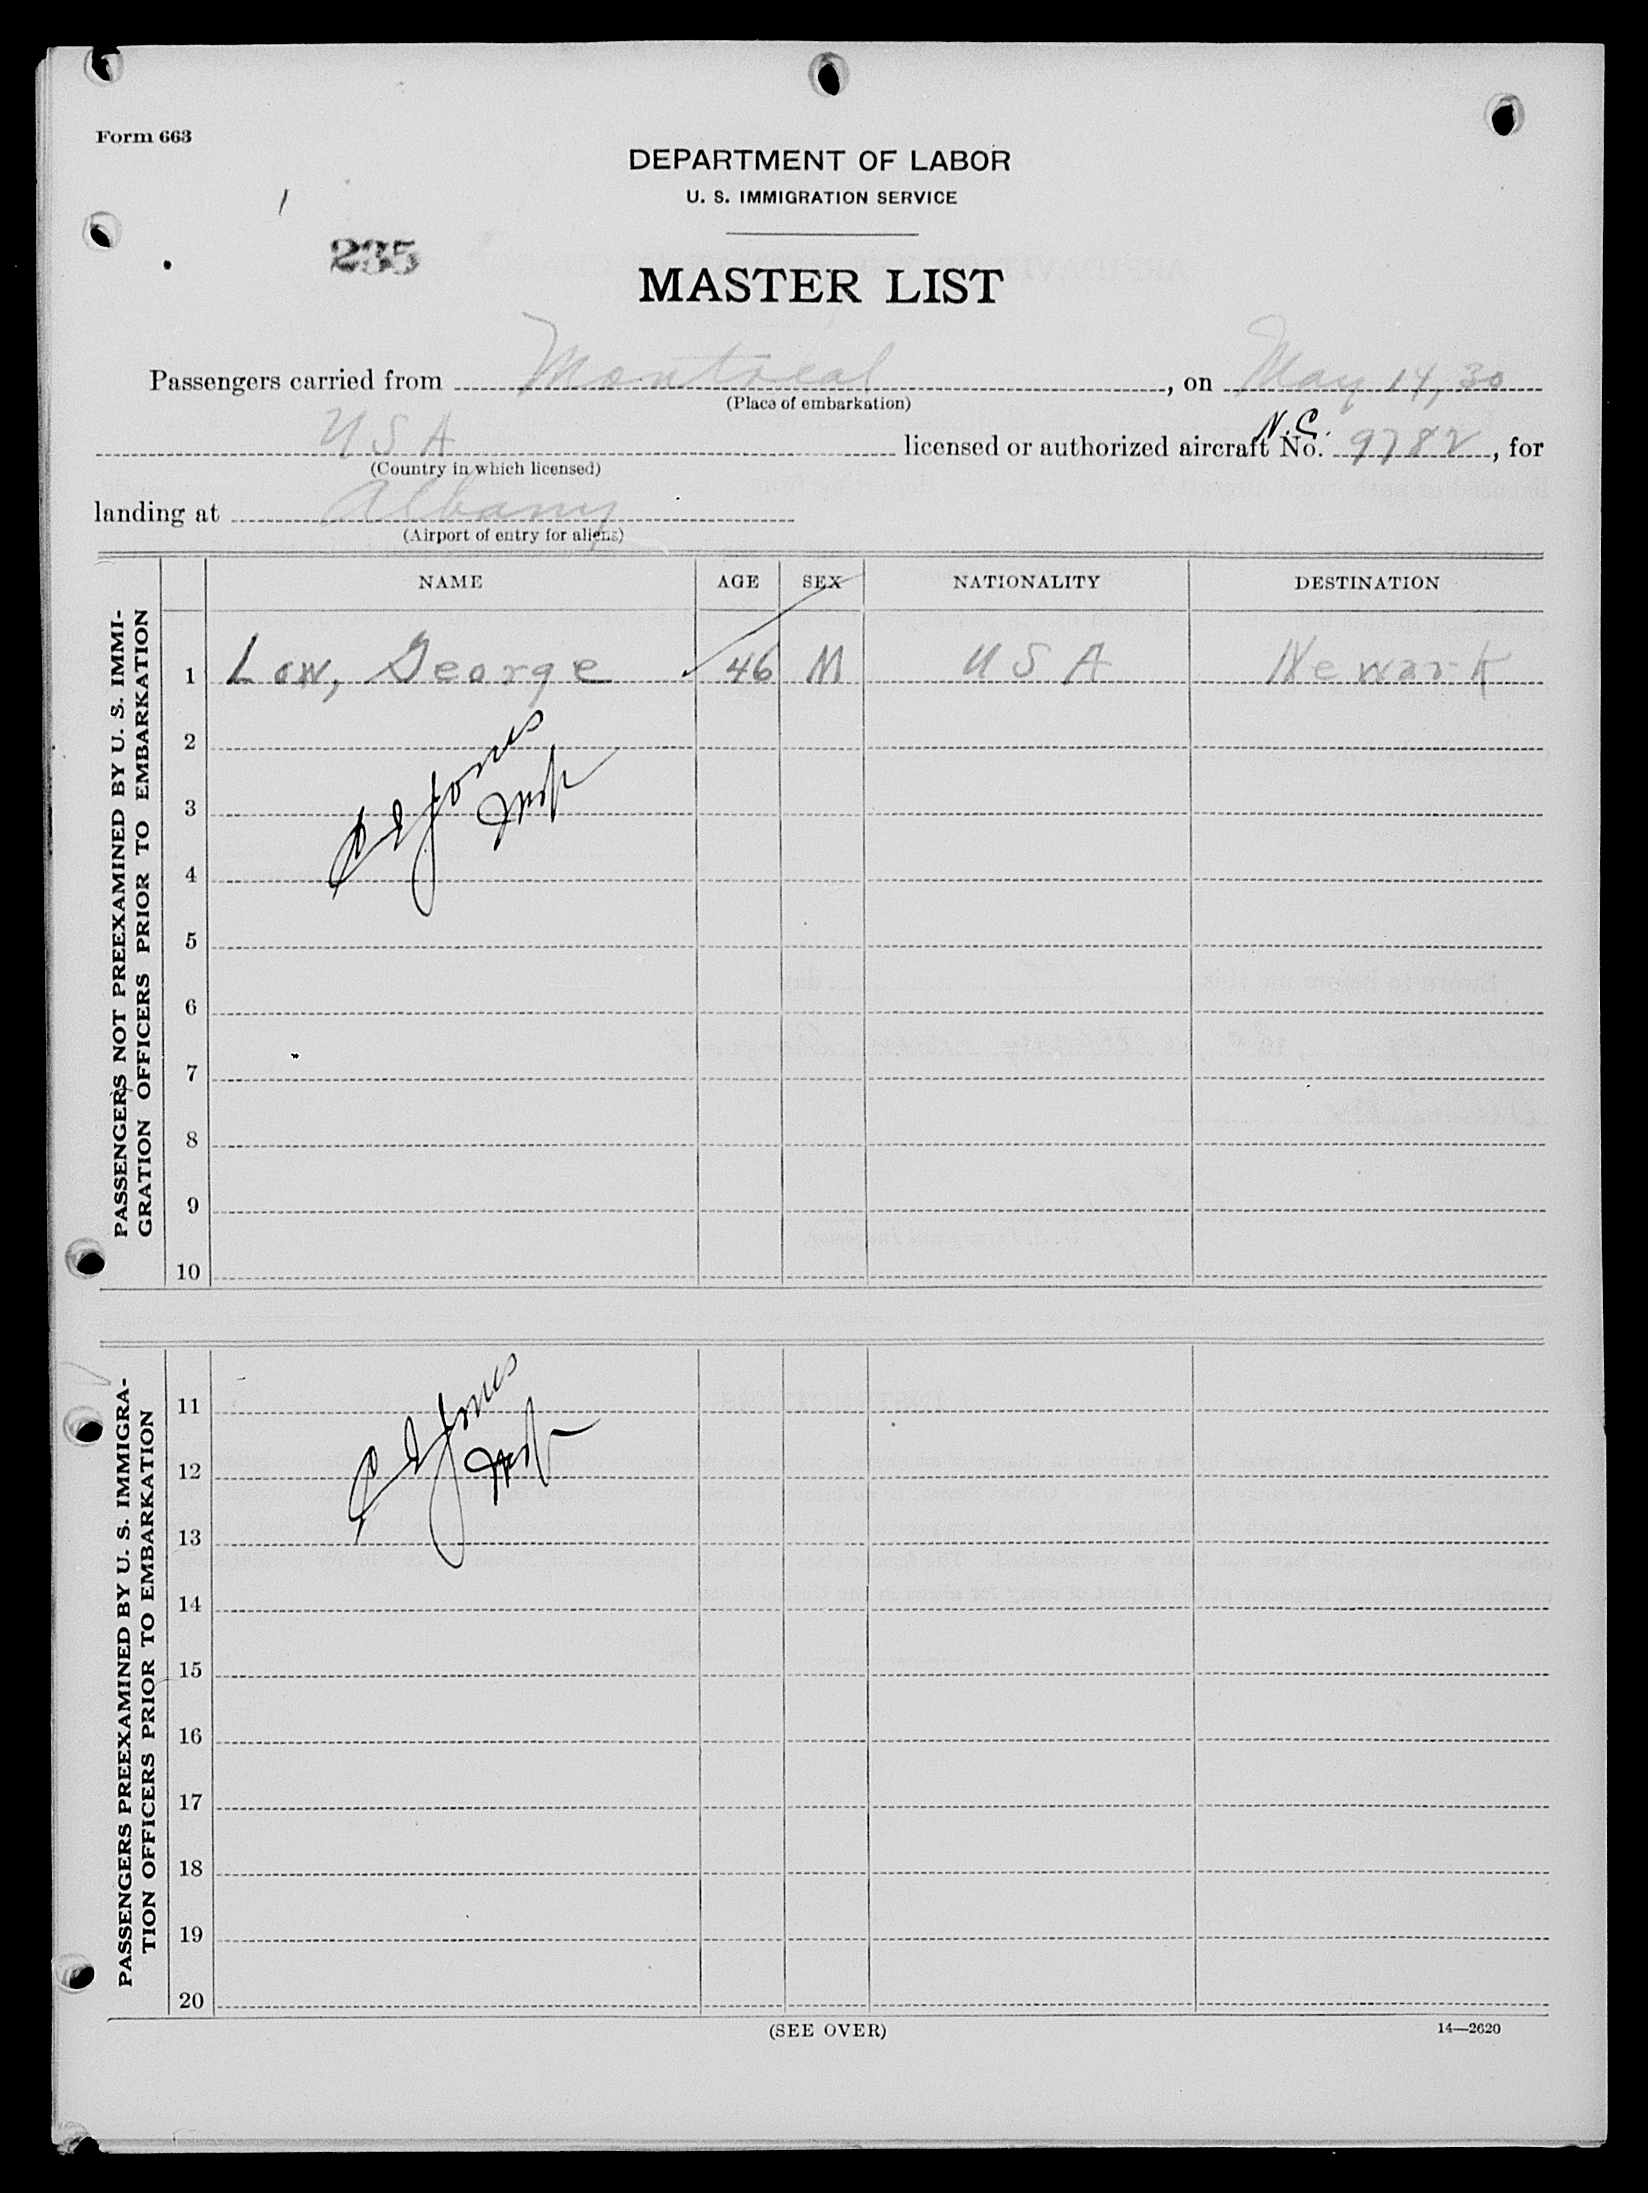 Form 663
DEPARTMENT OF LABOR
U. S. IMMIGRATION SERVICE
1
235
MASTER LIST
Passengers carried from Montreal, on May 14, 30
(Place of embarkation)
N.C.
USA licensed or authorized aircraft No. 9782, for
(Country in which licensed)
landing at Albany
(Airport of entry for aliens)
NAME AGE SEX NATIONALITY DESTINATION
PASSENGERS NOT PREEXAMINED BY U. S. IMMI-
GRATION OFFICERS PRIOR TO EMBARKATION
1 Low, George 46 M USA Newark
2
Jones
3
Insp
4
5
6
7
8
9
10
PASSENGERS PREEXAMINED BY U. S. IMMIGRA-
TION OFFICERS PRIOR TO EMBARKATION
11
Jones
12
Insp
13
14
15
16
17
18
19
20
(SEE OVER)
14—2620